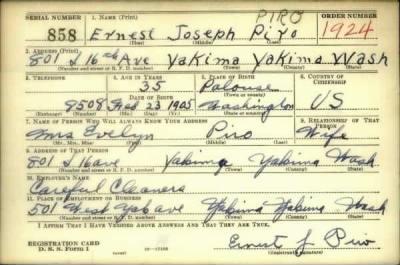 SERIAL NUMBER 1. NAME (Print) PIRO ORDER NUMBER
858 Ernest Joseph Piro 1924
(First) (Middle) (Last)
2. ADDRESS (Print)
801 S 16th Ave Yakima Yakima Wash
(Number and street or R. F. D. number) (Town) (County) (State)
3. TELEPHONE 4. AGE IN YEARS 5. PLACE OF BIRTH 6. COUNTRY OF CITIZENSHIP
35 Palouse
DATE OF BIRTH (Town or county)
9508 Feb 23 1905 Washington US
(Exchange) (Number) (Mo.) (Day) (Yr.) (State or country)
7. NAME OF PERSON WHO WILL ALWAYS KNOW YOUR ADDRESS 8. RELATIONSHIP OF THAT PERSON
Mrs Evelyn Piro Wife
(Mr., Mrs., Miss) (First) (Middle) (Last)
9. ADDRESS OF THAT PERSON
801 S 16 ave Yakima Yakima Wash.
(Number and street or R. F. D. number) (Town) (County) (State)
10. EMPLOYER'S NAME
Careful Cleaners
11. PLACE OF EMPLOYMENT OR BUSINESS
501 West Yak ave Yakima Yakima Wash
(Number and street or R. F. D. number) (Town) (County) (State)
I AFFIRM THAT I HAVE VERIFIED ABOVE ANSWERS AND THAT THEY ARE TRUE.
REGISTRATION CARD
D. S. S. Form 1 Ernest J Piro
(Registrant's signature)